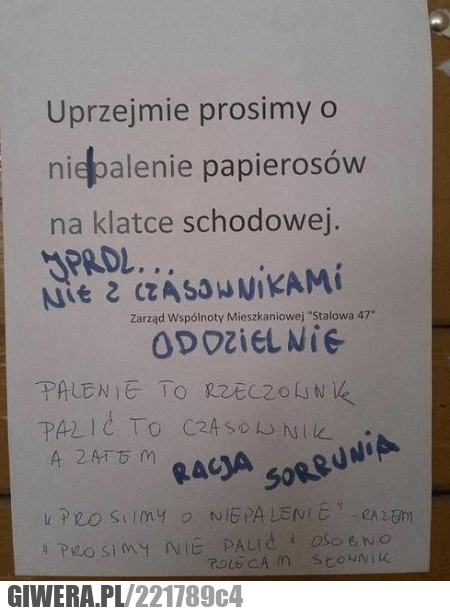 Uprzejmie prosimy o
nie|palenie papierosów
na klatce schodowej.
JPRDL...
NIE Z CZASOWNIKAMI
Zarząd Wspólnoty Mieszkaniowej "Stalowa 47"
ODDZIELNIE
PALENIE TO RZECZOWNIK
PALIĆ TO CZASOWNIK
A ZATEM
RACJA SORRUNIA
"PROSIMY O NIEPALENIE" - RAZEM
"PROSIMY NIE PALIĆ" OSOBNO
POLECAM SŁOWNIK
GIWERA.PL/221789c4